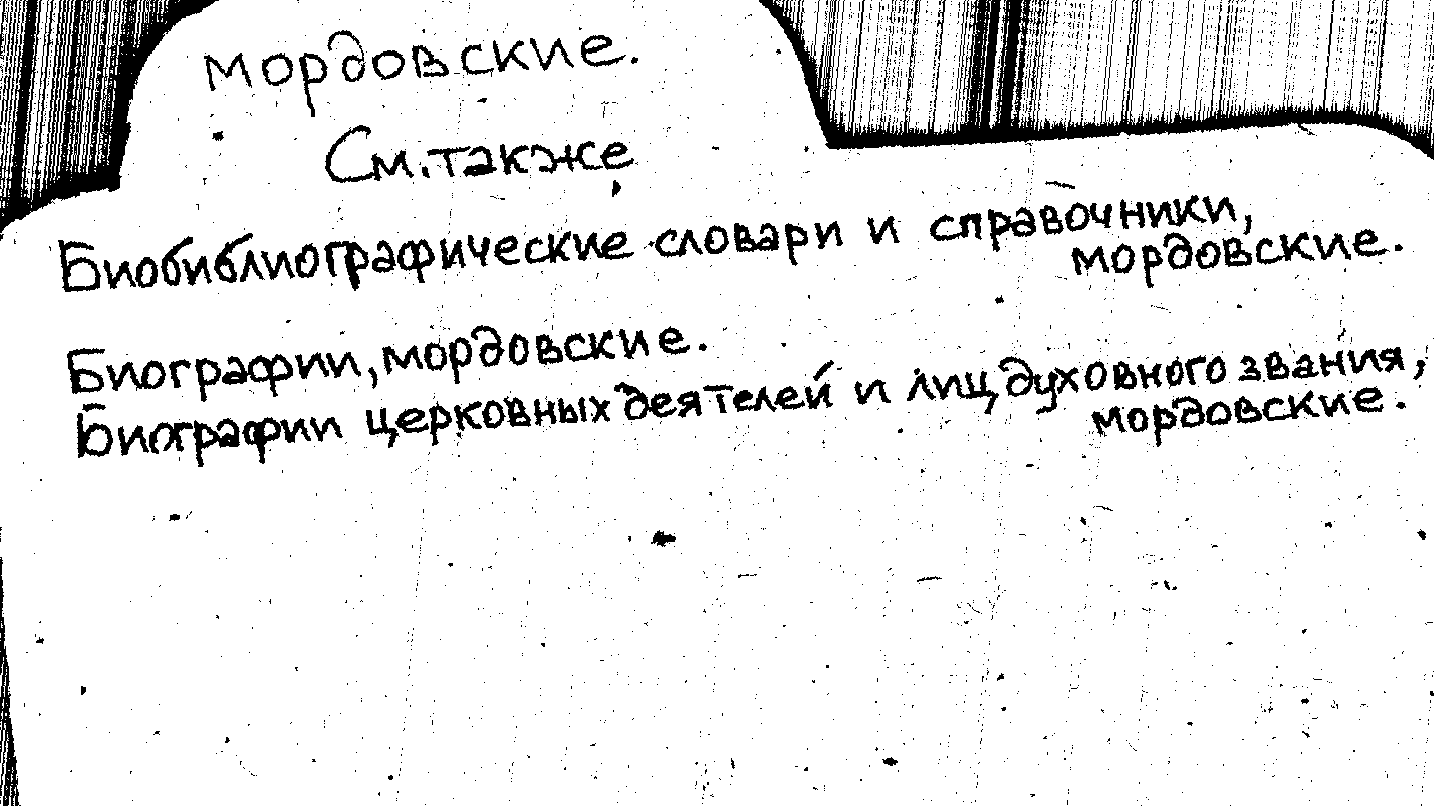 мордовские.
См. также
Биобиблиографические словари и справочники,
мордовские.
Биографии, мордовские.
Биографии церковных деятелей и лиц духовного звания,
мордовские.